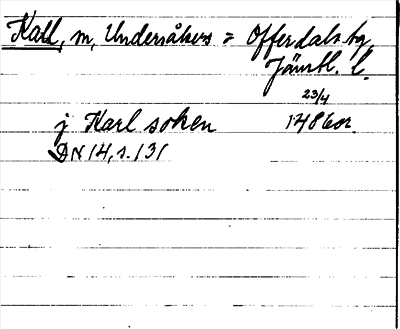 Kall, m, Undersåkers = Offerdals tg,
Jämtl. l.
23/4
j Karl soken 1486 or.
DN 14, s. 131